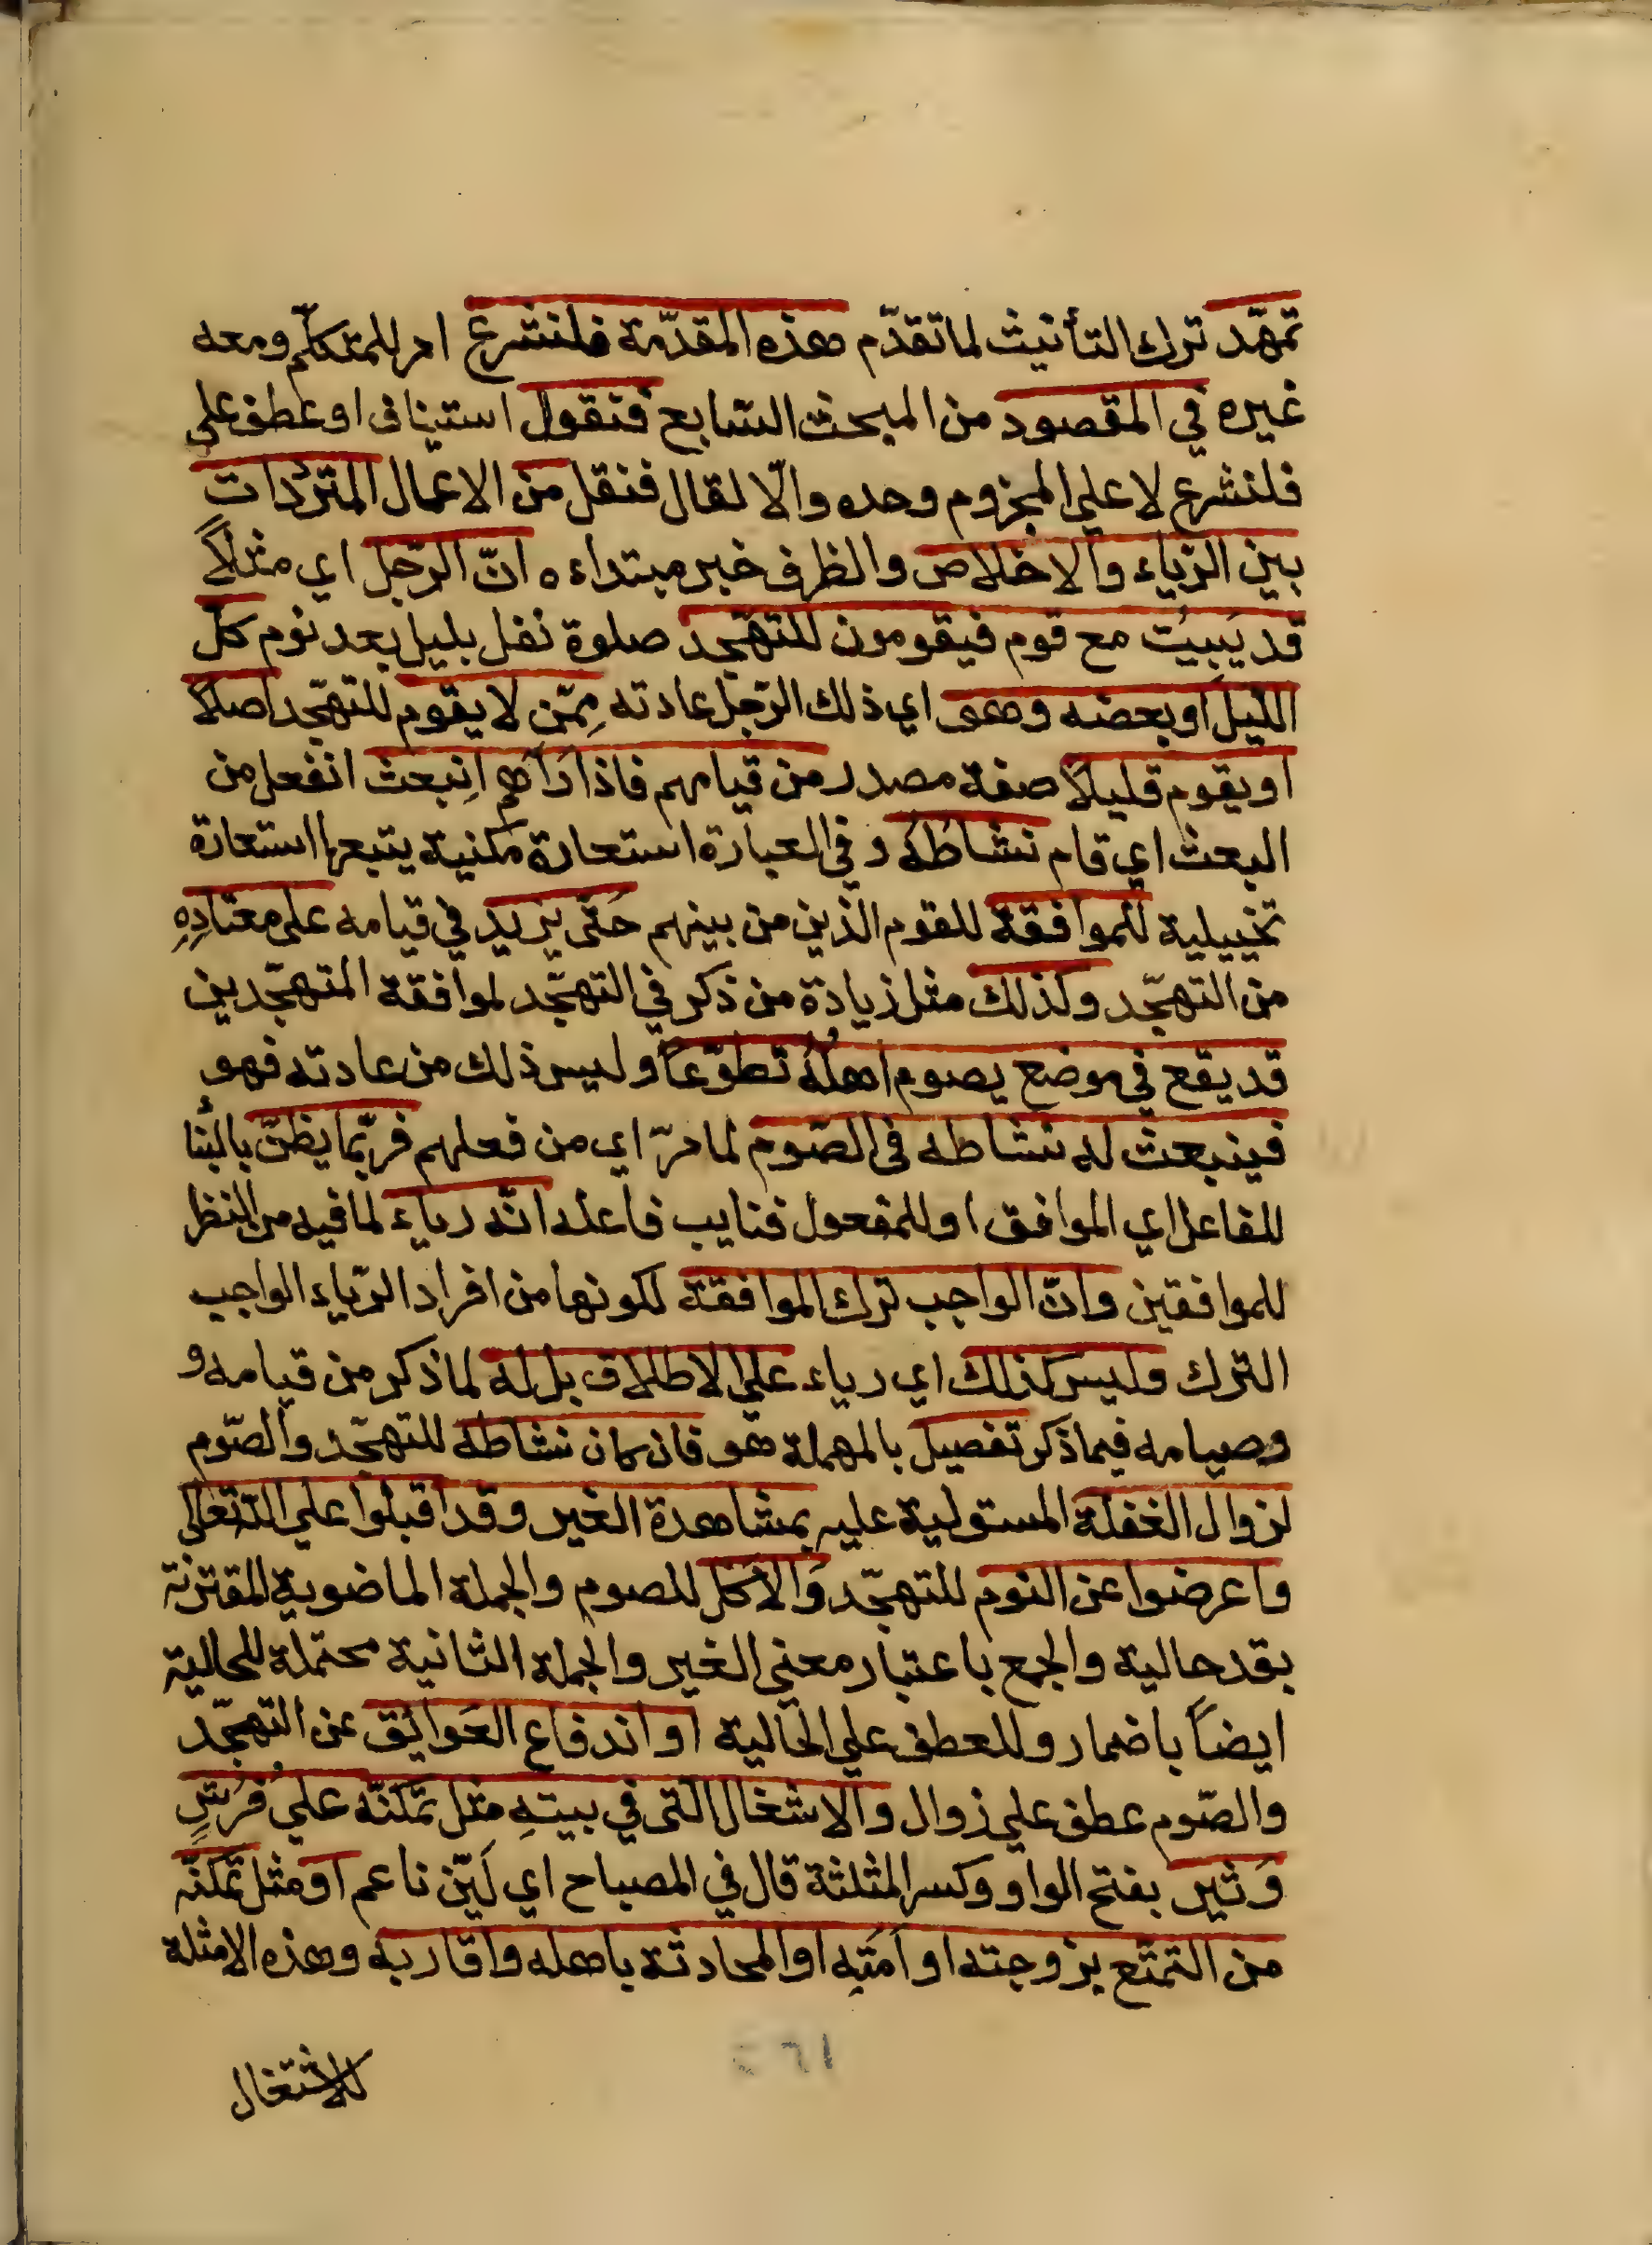 تمهّد ترك التأنيث لما تقدّم هذه المقدّمة فلنشرع امر للمتكلّم ومعه
غيره في المقصود من المبحث السّابع فنقول استيناف او عطف على
فلنشرع لا علي المجزوم وحده والّا لقال فنقل من الاعمال المتردّدات
بين الرّياء والاخلاص والظرف خبر مبتداءه انّ الرّجل اي مثلاً
قد يَبيتُ مع قوم فيقومون للتهجّد صلوة نفل بليل بعد نوم كلّ
الليل او بعضه وهو اي ذلك الرّجل عادته مِمّن لا يقوم للتهجّد اصلاً
او يقوم قليلاً صفة مصدر من قيامهم فاذا رَآهم اِنبعث انفعل من
البعث اي قام نشاطُهُ وفي العبارة استعارة مكنية يتبعها استعارة
تخييلية للموافقة للقوم الذين من بينهم حَتّى يزيد في قيامه على معتادِهِ
من التهجّد وكذلك مثل زيادة من ذكر في التهجّد لموافقة المتهجّدين
قد يقع في موضع يصوم اهلُهُ تطوّعاً وليس ذلك من عادته فهو
فينبعث له نشاطه في الصّوم لما مرّ اي من فعلهم فربّما يظنّ بالبناء
للفاعل اي الموافق او للمفعول فنايب فاعله انّه رياء لما فيه من النظر
للموافقين وانّ الواجب ترك الموافقة لكونها من افراد الرّياء الواجب
الترك وليس كذلك اي رياء علي الاطلاق بل له لما ذكر من قيامه و
وصيامه فيما ذكر تفصيل بالمهملة هو فان كان نشاطه للتهجّد والصّوم
لزوال الغفلة المستولية عليه بمشاهدة الغير وقد اقبلوا علي الله تعالى
واعرضوا عن النوم للتهجّد وَالاكل للصوم والجملة الماضوية المقترنة
بقد حالية والجمع باعتبار معنى الغير والجملة الثانية محتملة للحالية
ايضاً باضمار وللعطف علي الحالية او اندفاع العَوائِق عن التهجّد
والصّوم عطف علي زوال والاشغال الّتى في بيتهِ مثل تمكّنه علي فُرُشٍ
وَثير بفتح الواو وكسر المثلثة قال في المصباح اي لَيّن ناعم او مثل تمكنّه
من التمتّع بزوجته او اَمَتِه او المحادثة باهله واقاربه وهذه الامثلة
للاشتغال